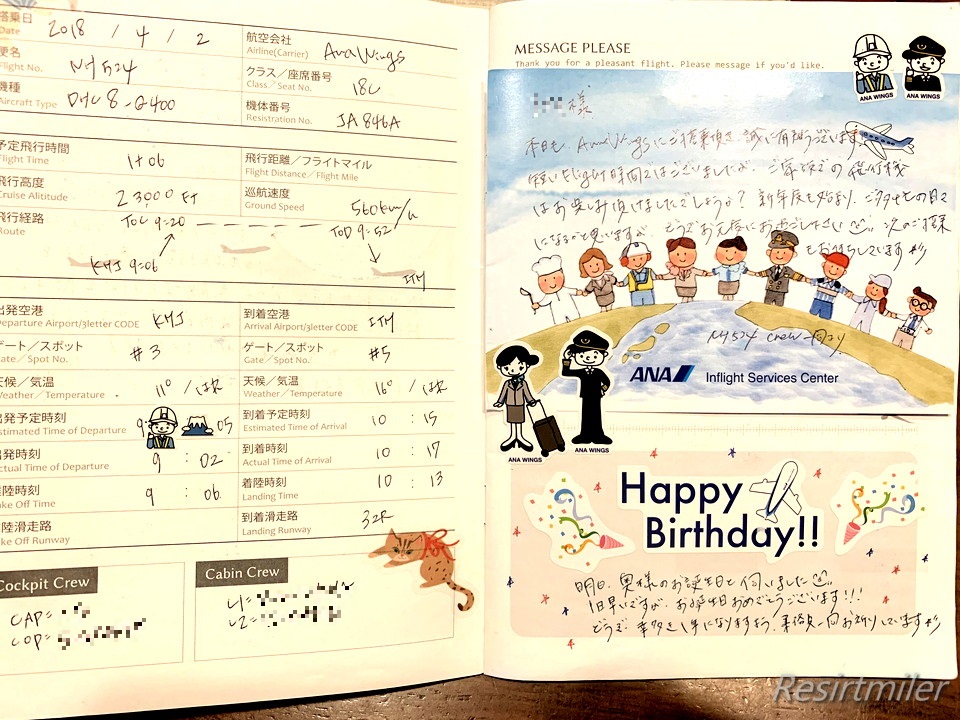 搭乗日
Date
2018 / 4 / 2
航空会社
Airline(Carrier)
AnaWings
便名
Flight No.
NH524
クラス／座席番号
Class／Seat No.
18C
機種
Aircraft Type
DHC8-Q400
機体番号
Resistration No.
JA846A
予定飛行時間
Flight Time
1+06
飛行距離／フライトマイル
Flight Distance／Flight Mile
飛行高度
Cruise Alititude
23000FT
巡航速度
Ground Speed
560km/h
飛行経路
Route
TOC 9:20
TOD 9:52
KMJ 9:06
ITM
出発空港
Departure Airport/3letter CODE
KMJ
到着空港
Arrival Airport/3letter CODE
ITM
ゲート／スポット
Gate／Spot No.
#3
ゲート／スポット
Gate／Spot No.
#5
天候／気温
Weather／Temperature
11° / はれ
天候／気温
Weather／Temperature
16° / はれ
出発予定時刻
Estimated Time of Departure
9: 05
到着予定時刻
Estimated Time of Arrival
10 : 15
出発時刻
Actual Time of Departure
9 : 02
到着時刻
Actual Time of Arrival
10 : 17
離陸時刻
Take Off Time
9 : 06
着陸時刻
Landing Time
10 : 13
離陸滑走路
Take Off Runway
到着滑走路
Landing Runway
32R
Cockpit Crew
CAP=
COP=
Cabin Crew
L1=
L2=
MESSAGE PLEASE
Thank you for a pleasant flight. Please message if you'd like.
ANA WINGS
ANA WINGS
様
本日も、AnaWingsにご搭乗頂き誠に有難うございます。
短いFlight時間ではございましたが、ご家族での
はお楽しみ頂けましたでしょうか？新年度も始まり、ご多忙の日々
になるかと思いますが、どうぞお元気にお過ごし下さい 次のご搭乗
をお待ちしています
NH524 crew一同より
ANA Inflight Services Center
ANA WINGS
ANA WINGS
Happy
Birthday!!
明日、奥様のお誕生日と伺いました
1日早いですが、お誕生日おめでとうございます!!!
どうぞ幸多き1年になりますよう、乗務員一同お祈りしています
Resirtmiler